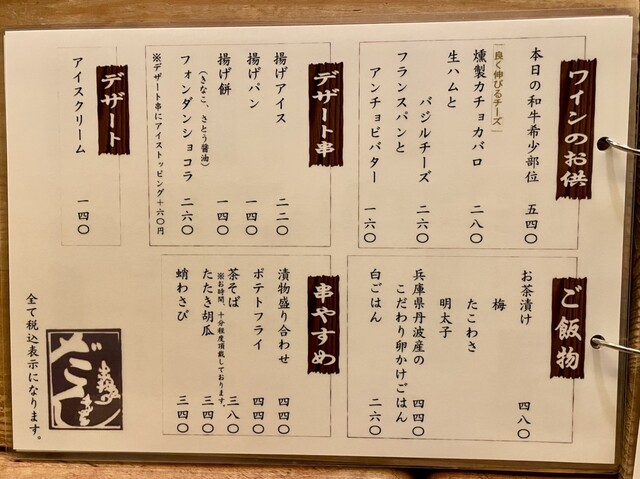 ワインのお供
本日の和牛希少部位 五四〇
良く伸びるチーズ
燻製カチョカバロ 二八〇
生ハムと
バジルチーズ 二六〇
フランスパンと
アンチョビバター 一六〇
デザート串
揚げアイス 二二〇
揚げパン 一四〇
揚げ餅 一四〇
（きなこ、さとう醤油）
フォンダンショコラ 二六〇
※デザート串にアイストッピング＋六〇円
デザート
アイスクリーム 一四〇
ご飯物
お茶漬け 四八〇
梅
たこわさ
明太子
兵庫県丹波産の
こだわり卵かけごはん 四四〇
白ごはん 二六〇
串やすめ
漬物盛り合わせ 四四〇
ポテトフライ 四四〇
茶そば 三八〇
※お時間、十分程度頂戴しております。
たたき胡瓜 三四〇
蛸わさび 三四〇
全て税込表示になります。